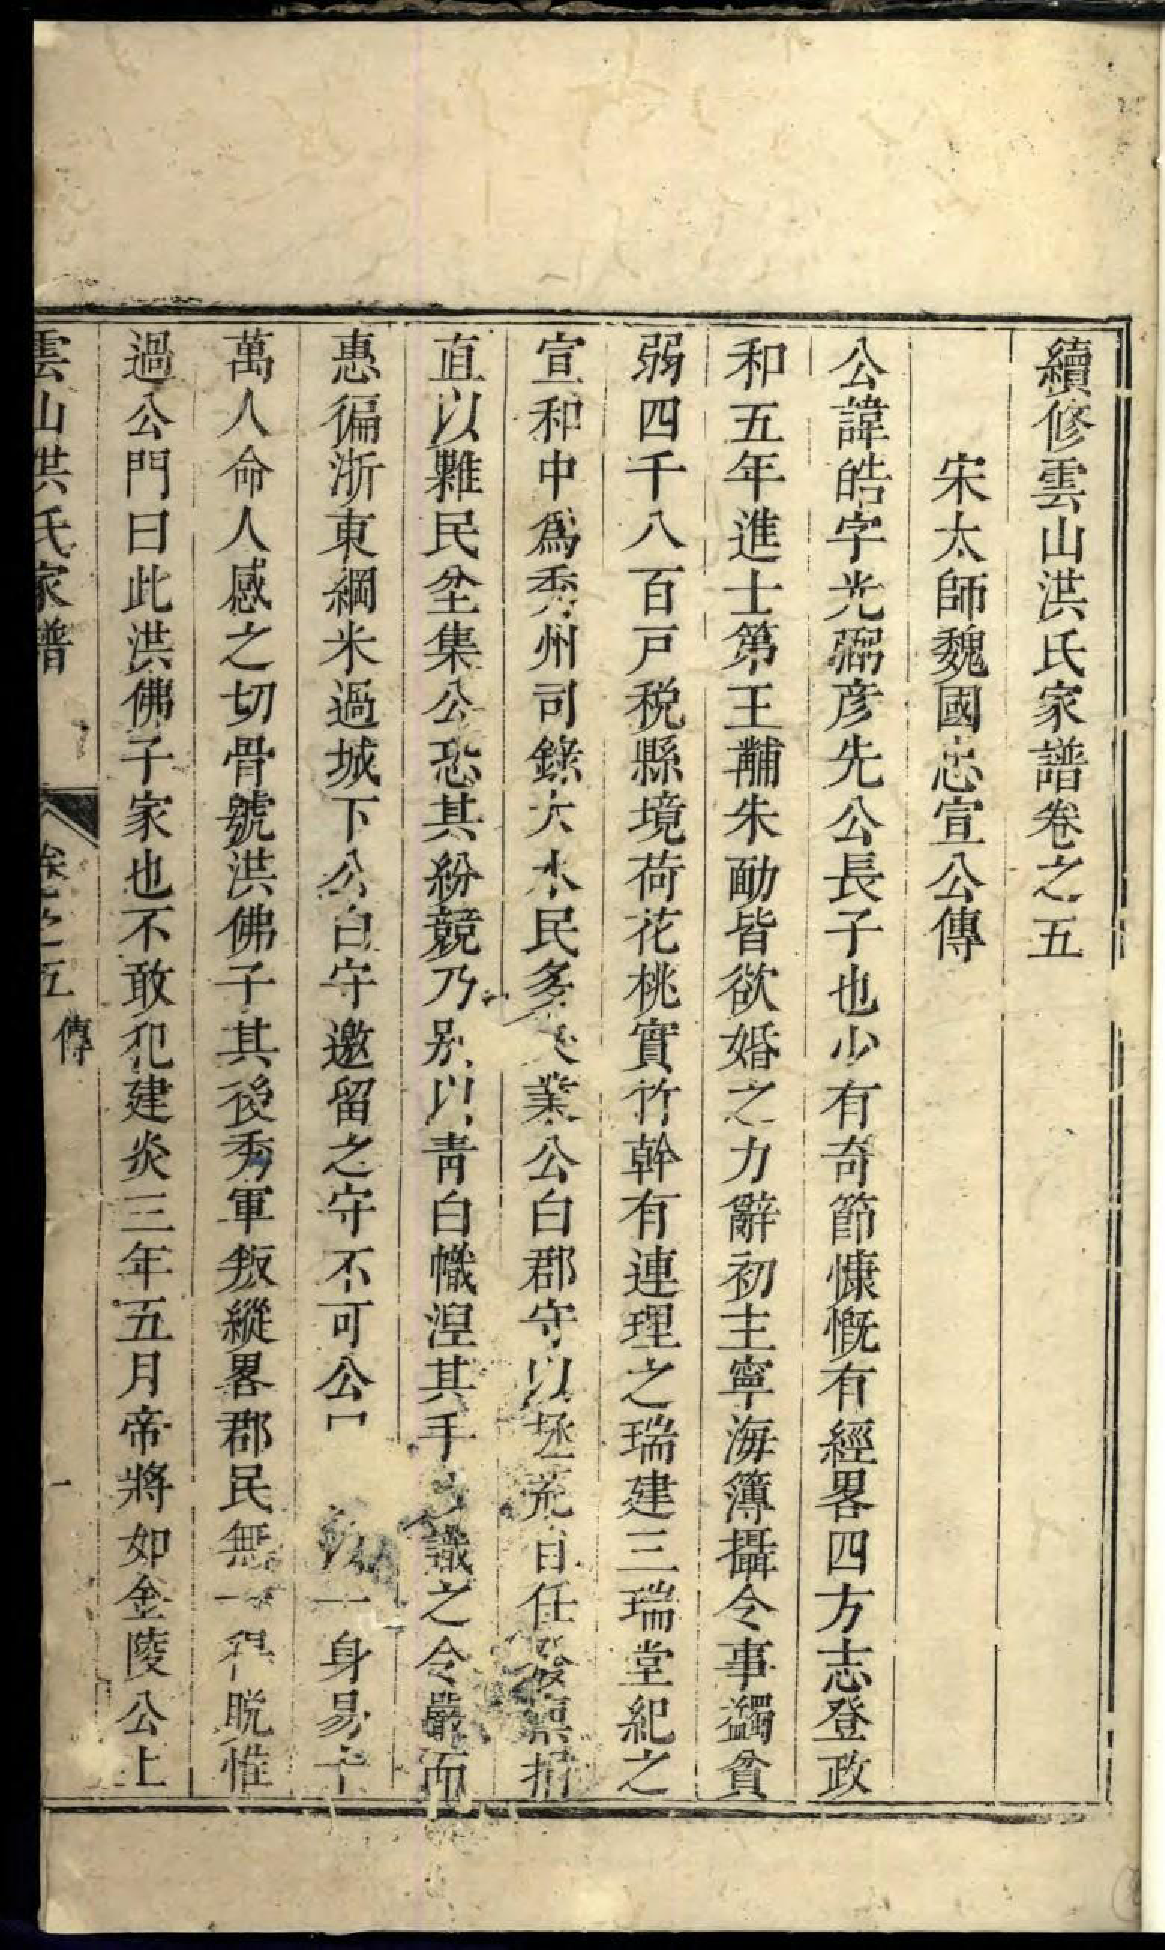 續修雲山洪氏家譜卷之五
宋太師魏國忠宣公傳
公諱皓字光弼彦先公長子也少有奇節慷慨有經畧四方志登政
和五年進士第王黼朱勔皆欲婚之力辭初主寧海簿攝令事蠲貧
弱四千八百戸税縣境荷花桃實竹幹有連理之瑞建三瑞堂紀之
宣和中爲秀州司錄大水民多失業公白郡守以拯荒自任發廩損
直以糶民坌集公恐其紛競乃别以青白幟涅其手以識之令嚴而
惠徧浙東綱米過城下公白守邀留之守不可公一身易十
萬人命人感之切骨號洪佛子其後秀軍叛縱畧郡民無一得脱惟
過公門曰此洪佛子家也不敢犯建炎三年五月帝將如金陵公上
雲山洪氏家譜 卷之五 傳 一